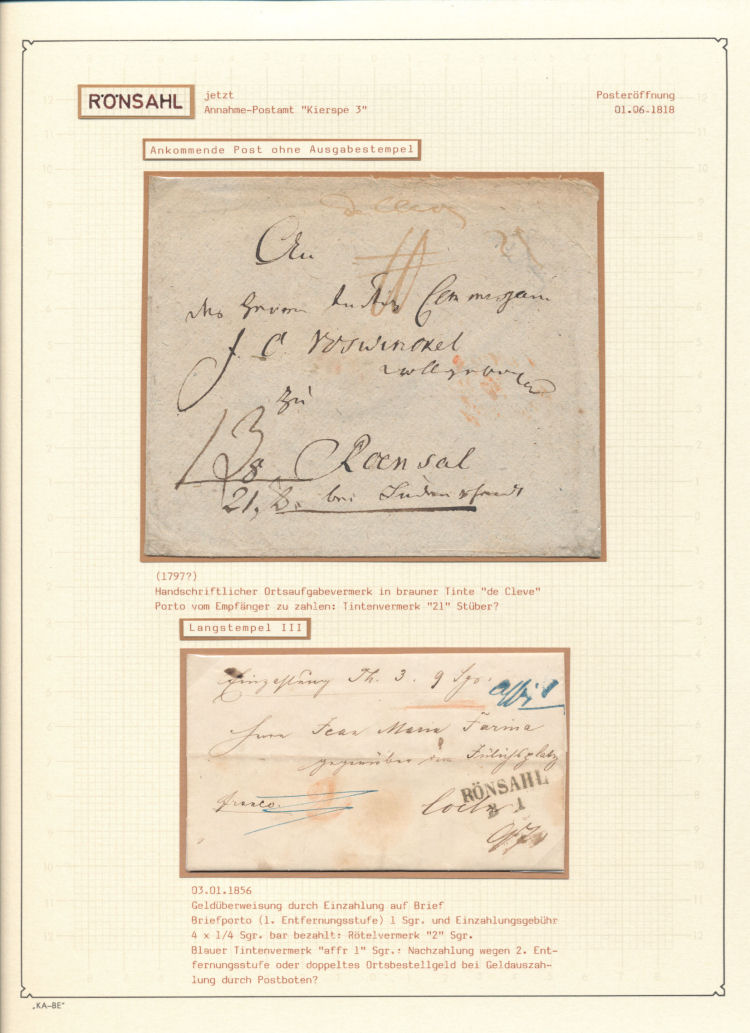 RÖNSAHL
jetzt
Annahme-Postamt "Kierspe 3"
Posteröffnung
01.06.1818
Ankommende Post ohne Ausgabestempel
de Cleve
An
des Herrn
J. C. Voswinckel
zu
Roensal
21,
bei
(1797?)
Handschriftlicher Ortsaufgabevermerk in brauner Tinte "de Cleve"
Porto vom Empfänger zu zahlen: Tintenvermerk "21" Stüber?
Langstempel III
Einzahlung Th. 3. 9 Sgr.
Herrn Jean Maria Farina
gegenüber dem Jülichsplatz
RÖNSAHL
franco
Coeln
3 1
03.01.1856
Geldüberweisung durch Einzahlung auf Brief
Briefporto (1. Entfernungsstufe) 1 Sgr. und Einzahlungsgebühr
4 x 1/4 Sgr. bar bezahlt: Rötelvermerk "2" Sgr.
Blauer Tintenvermerk "affr 1" Sgr.: Nachzahlung wegen 2. Ent-
fernungsstufe oder doppeltes Ortsbestellgeld bei Geldauszah-
lung durch Postboten?
„KA-BE"